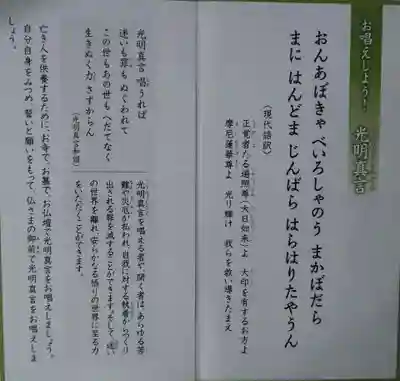 お唱えしよう！ 光明真言
おんあぼきゃ べいろしゃのう まかぼだら
まに はんどま じんばら はらはりたやうん
〈現代語訳〉
正覚者たる遍照尊（大日如来）よ 大印を有するお方よ
摩尼蓮華尊よ 光り輝け 我らを救い導きたまえ
光明真言を唱える者や、聞く者はあらゆる苦
難や災厄が払われ、自我に対する執着からつくり
出される罪を滅することができます。そして、迷い
の世界を離れ、安らかなる悟りの世界に至る力
をいただくことができます。
光明真言 唱うれば
迷いも罪も ぬぐわれて
この世もあの世も へだてなく
生きぬく力 さずからん
（光明真言和讃）
亡き人を供養するために、お寺で、お墓で、お仏壇で光明真言をお唱えしましょう。
自分自身をみつめ、誓いと願いをもって、仏さまの御前で光明真言をお唱えしま
しょう。